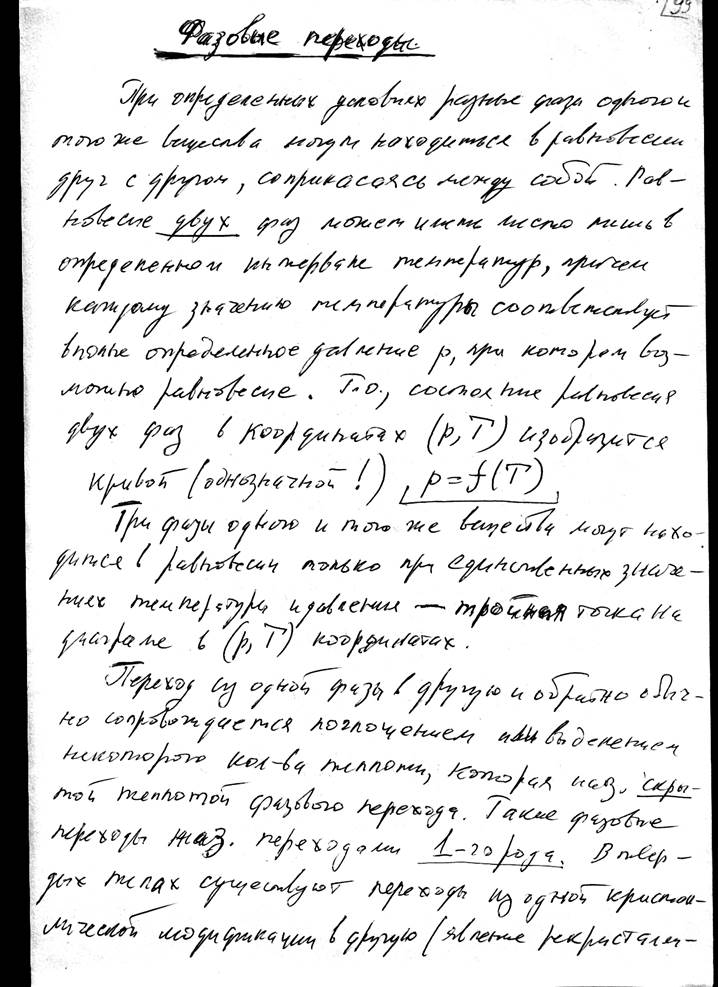 99
Фазовые переходы.
При определенных условиях разные фазы одного и
того же вещества могут находиться в равновесии
друг с другом, соприкасаясь между собой. Рав-
новесие двух фаз может иметь место лишь в
определенном интервале температур, причем
каждому значению температуры соответствует
вполне определенное давление p, при котором воз-
можно равновесие. Т.о., состояние равновесия
двух фаз в координатах (p,T) изобразится
кривой (однозначной!) p=f(T)
Три фазы одного и того же вещества могут нахо-
дится в равновесии только при единственных значе-
ниях температуры и давления — тройная точка на
диаграме в (p,T) координатах.
Переход из одной фазы в другую и обратно обыч-
но сопровождается поглощением или выделением
некоторого кол-ва теплоты, которая наз. скры-
той теплотой фазового перехода. Такие фазовые
переходы наз. переходами 1-го рода. В твер-
дых телах существуют переходы из одной кристал-
лической модификации в другую (явление рекристалли-